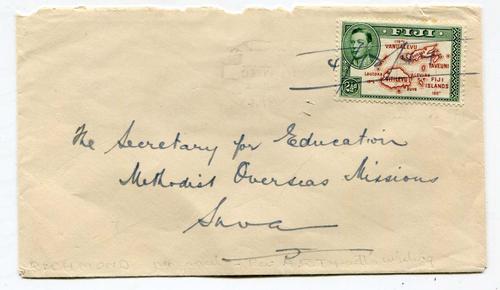 FIJI
VANUALEVU
TAVEUNI
VITILEVU
SUVA
FIJI
ISLANDS
180°
2½d
The Secretary for Education
Methodist Overseas Missions
Suva
RICHMOND